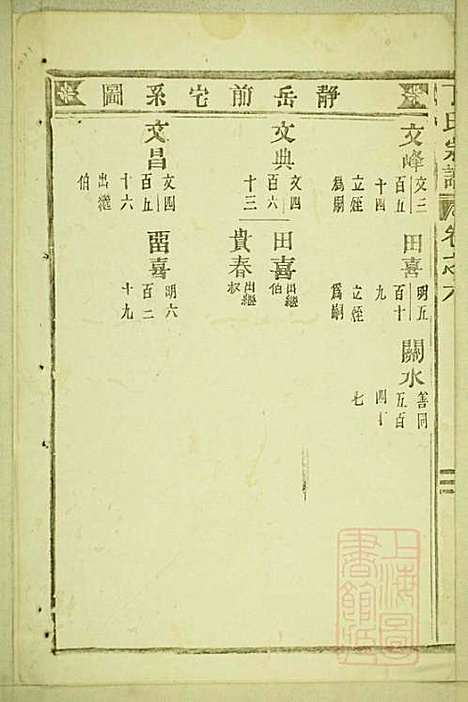 丁氏宗譜
卷之六
靜岳前宅系圖
文峰
文三
百五
十四
立姪
爲嗣
田喜
明五
百十
九
立姪
爲嗣
關水
善同
五百
四十
七
文典
文四
百六
十三
田喜
出繼
伯
貴春
出繼
叔
文昌
文四
百五
十六
出繼
伯
畱喜
明六
百二
十九
上海圖
書館藏